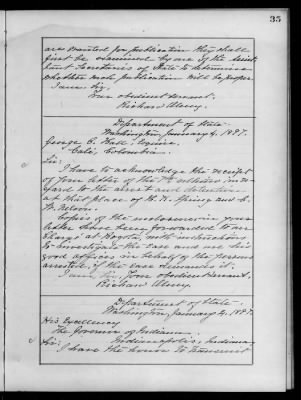 35
are wanted for publication they shall
first be examined by one of the Assist-
ant Secretaries of State to determine
whether such publication will be proper.
I am, Sir,
Your obedient servant,
Richard Olney.
Department of State,
Washington, January 4, 1897.
George C. Hall, Esquire,
Cali, Colombia.
Sir:
I have to acknowledge the receipt
of your letter of the 7th ultimo, in re-
gard to the arrest and detention
at that place of
Copies of the enclosures in your
letter have been forwarded to our
Chargé at Bogotá, with instructions
to investigate the case and use his
good offices in behalf of the persons
arrested, if the case demands it.
I am, Sir, Your obedient servant,
Richard Olney.
Department of State,
Washington, January 4, 1897.
His Excellency
The Governor of Indiana,
Indianapolis, Indiana.
Sir:
I have the honor to transmit